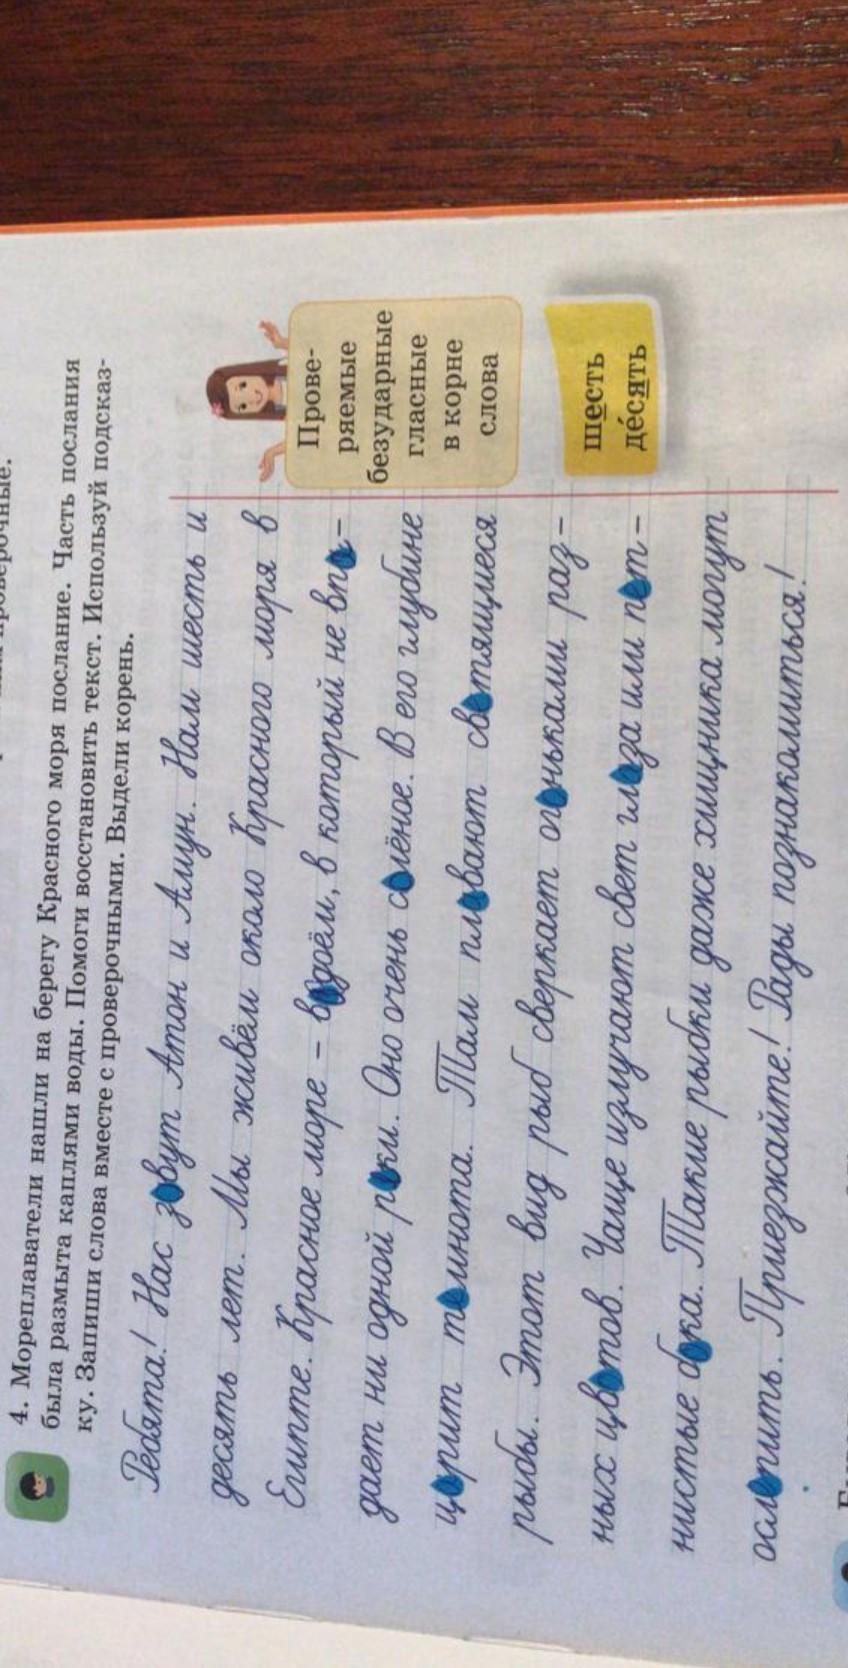 4. Мореплаватели нашли на берегу Красного моря послание. Часть послания
была размыта каплями воды. Помоги восстановить текст. Используй подсказ-
ку. Запиши слова вместе с проверочными. Выдели корень.
Ребята! Нас зовут Атон и Амун. Нам шесть и
десять лет. Мы живём около Красного моря в
Египте. Красное море – водоём, в который не впа-
дает ни одной реки. Оно очень солёное. В его глубине
царит темнота. Там плавают светящиеся
рыбы. Этот вид рыб сверкает огоньками раз-
ных цветов. Чаще излучают свет глаза или пят-
нистые бока. Такие рыбки даже хищника могут
ослепить. Приезжайте! Рады познакомиться!
Прове-
ряемые
безударные
гласные
в корне
слова
шесть
де́сять